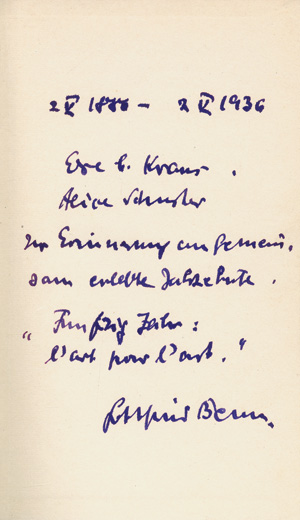 2 V 1886 – 2 V 1936
Kraus.
Alice Schuster
zur Erinnerung an gemein-
sam erlebte Jahrzehnte.
"Fünfzig Jahre:
l'art pour l'art."
Gottfried Benn.